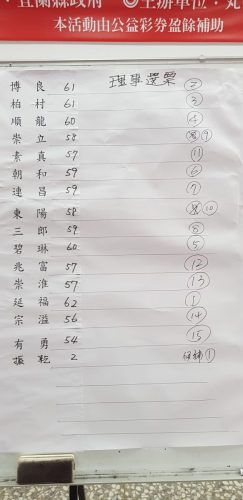 宜蘭縣政府 ◎主辦單位:丸
本活動由公益彩券盈餘補助
理事選票
博良 61 ②
柏村 61 ③
順龍 60 ④
崇立 58 ⑨
素真 57 ⑪
朝和 59 ⑥
連昌 59 ⑦
東陽 58 ⑩
三郎 59 ⑧
碧琳 60 ⑤
兆富 57 ⑫
崇淮 57 ⑬
延福 62 ①
宗溢 56 ⑭
有勇 54 ⑮
振乾 2 候補①